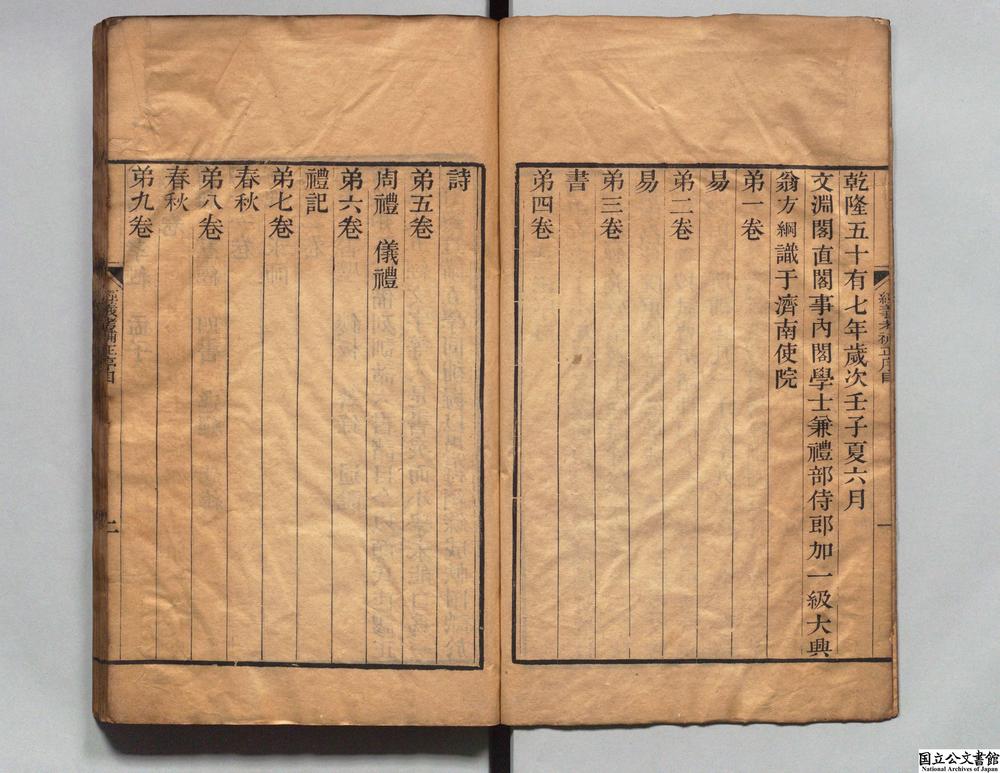 乾隆五十有七年歲次壬子夏六月
文淵閣直閣事內閣學士兼禮部侍郎加一級大興
翁方綱識于濟南使院
弟一卷
易
弟二卷
易
弟三卷
書
弟四卷
詩
弟五卷
周禮 儀禮
弟六卷
禮記
弟七卷
春秋
弟八卷
春秋
弟九卷
經義考補正序目
一
經義考補正序目
二
国立公文書館
National Archives of Japan